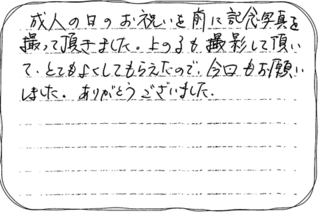 成人の日のお祝いを前に記念写真を
撮って頂きました。上の子も撮影して頂い
て、とてもよくしてもらえたので、今回もお願い
しました。ありがとうございました。